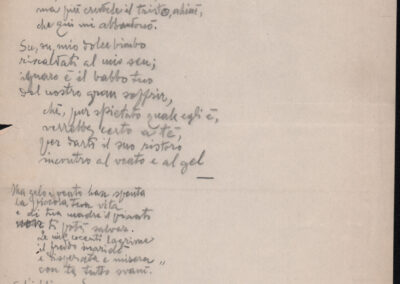 ma più crudele il tristo, ahimè,
che qui mi abbandonò.
Su, su, mio dolce bimbo
riscaldati al mio sen;
ignaro è il babbo tuo
del nostro gran soffrir,
chè, pur spietato quale egli è,
verrebbe certo a te,
per darti il suo ristoro
incontro al vento e al gel
Ma gelo e vento han spenta
la piccola tua vita
e di tua madre il
ti potè salvar.
Le mie cocenti lagrime
il freddo
e disperata e misera
con te tutto svanì.